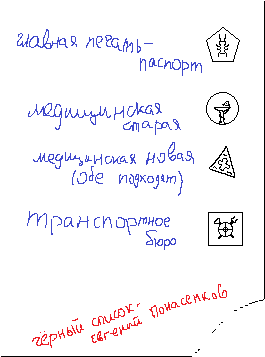 главная печать-
паспорт
медицинская
старая
медицинская новая
(обе подходят)
транспортное
бюро
чёрный список-
евгений понасенков